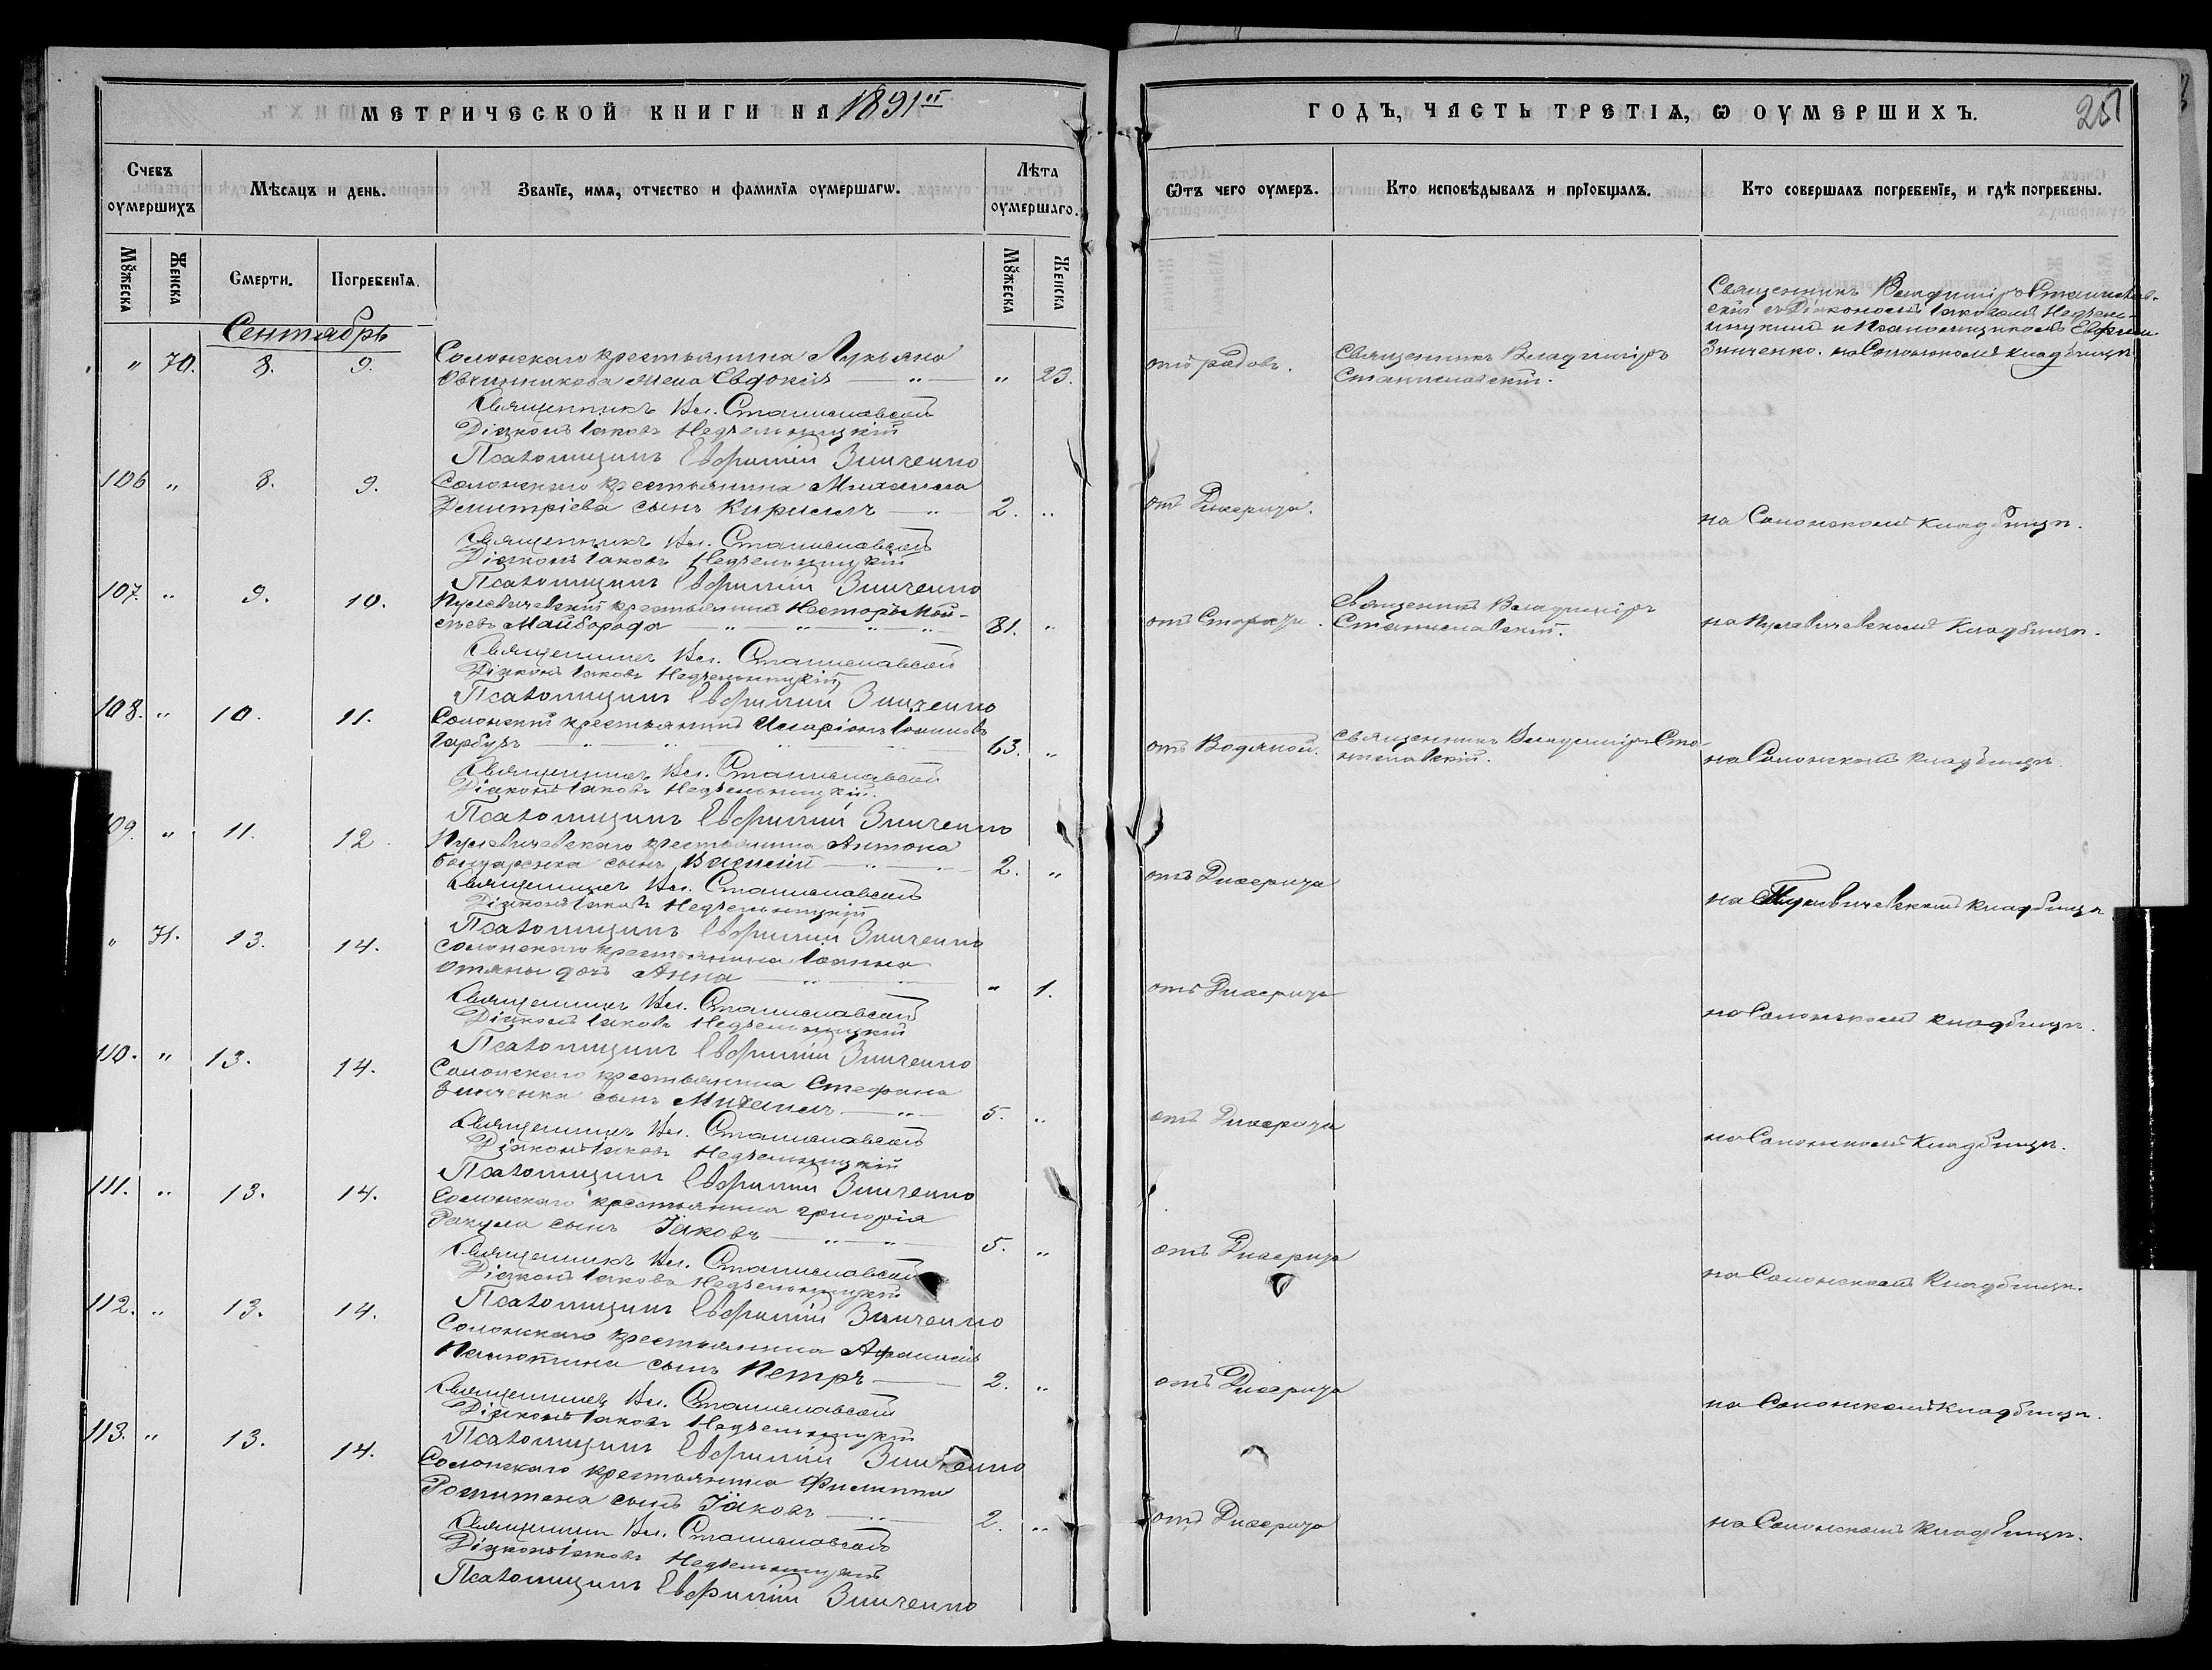 МЕТРИЧЕСКОЙ КНИГИ НА 1891й
ГОДЪ, ЧАСТЬ ТРЕТІѦ, Ѡ ОУМЕРШИХЪ.
Счевъ оумершихъ
Мѣсѧцъ и день.
Званїе, имѧ, отчество и фамилїѧ оумершагѡ.
Лѣта оумершаго.
Ѡтъ чего оумеръ.
Кто исповѣдывалъ и прїобщалъ.
Кто совершалъ погребенїе, и гдѣ погребены.
Мꙋжеска
Женска
Смерти.
Погребенїѧ.
Мꙋжеска
Женска
Сентябрь
Священникъ Владиміръ Станиславскій съ Діакономъ Іаковомъ Недзельницкимъ и Псаломщикомъ Евфим. Зинченко. на Солонскомъ кладбищѣ
" 70. 8. 9. Солонскаго крестьянина Лукьяна
Овчинникова жена Евдокія " 23. отъ родовъ. Священникъ Владиміръ Станиславскій.
Священникъ Вл. Станиславскій
Діаконъ Іаковъ Недзельницкій
Псаломщикъ Евфимій Зинченко
106 " 8. 9. Солонскаго крестьянина Михаила
Димитріева сынъ Кириллъ 2. " отъ Дифтерита. на Солонскомъ кладбищѣ.
Священникъ Вл. Станиславскій
Діаконъ Іаковъ Недзельницкій
Псаломщикъ Евфимій Зинченко
107. " 9. 10. крестьянинъ Несторъ Мой-
сѣевъ Майборода 81. " отъ Старости. Священникъ Владиміръ Станиславскій. на кладбищѣ.
Священникъ Вл. Станиславскій
Діаконъ Іаковъ Недзельницкій
Псаломщикъ Евфимій Зинченко
108. " 10. 11. Солонскій крестьянинъ Иларіонъ Іоанновъ
Гарбузъ 63. " отъ Водяной. Священникъ Владиміръ Станиславскій. на Солонскомъ кладбищѣ.
Священникъ Вл. Станиславскій
Діаконъ Іаковъ Недзельницкій.
Псаломщикъ Евфимій Зинченко
109. " 11. 12 крестьянина Антона
Бондаренка сынъ Василій 2. " отъ Дифтерита на кладбищѣ
Священникъ Вл. Станиславскій
Діаконъ Іаковъ Недзельницкій
Псаломщикъ Евфимій Зинченко
" 71. 13. 14. Солонскаго крестьянина Іоанна
дочь Анна " 1. отъ Дифтерита на Солонскомъ кладбищѣ.
Священникъ Вл. Станиславскій
Діаконъ Іаковъ Недзельницкій
Псаломщикъ Евфимій Зинченко
110. " 13. 14. Солонскаго крестьянина Стефана
Зинченка сынъ Михаилъ 5. " отъ Дифтерита на Солонскомъ кладбищѣ.
Священникъ Вл. Станиславскій
Діаконъ Іаковъ Недзельницкій
Псаломщикъ Евфимій Зинченко
111. " 13. 14. Солонскаго крестьянина Григорія
сынъ Іаковъ 5. " отъ Дифтерита на Солонскомъ кладбищѣ.
Священникъ Вл. Станиславскій
Діаконъ Іаковъ Недзельницкій
Псаломщикъ Евфимій Зинченко
112. " 13. 14. Солонскаго крестьянина Афанасія
сынъ Петръ 2. " отъ Дифтерита на Солонскомъ кладбищѣ.
Священникъ Вл. Станиславскій
Діаконъ Іаковъ Недзельницкій
Псаломщикъ Евфимій Зинченко
113. " 13. 14. Солонскаго крестьянина Филиппа
сынъ Іаковъ 2. " отъ Дифтерита на Солонскомъ кладбищѣ.
Священникъ Вл. Станиславскій
Діаконъ Іаковъ Недзельницкій
Псаломщикъ Евфимій Зинченко